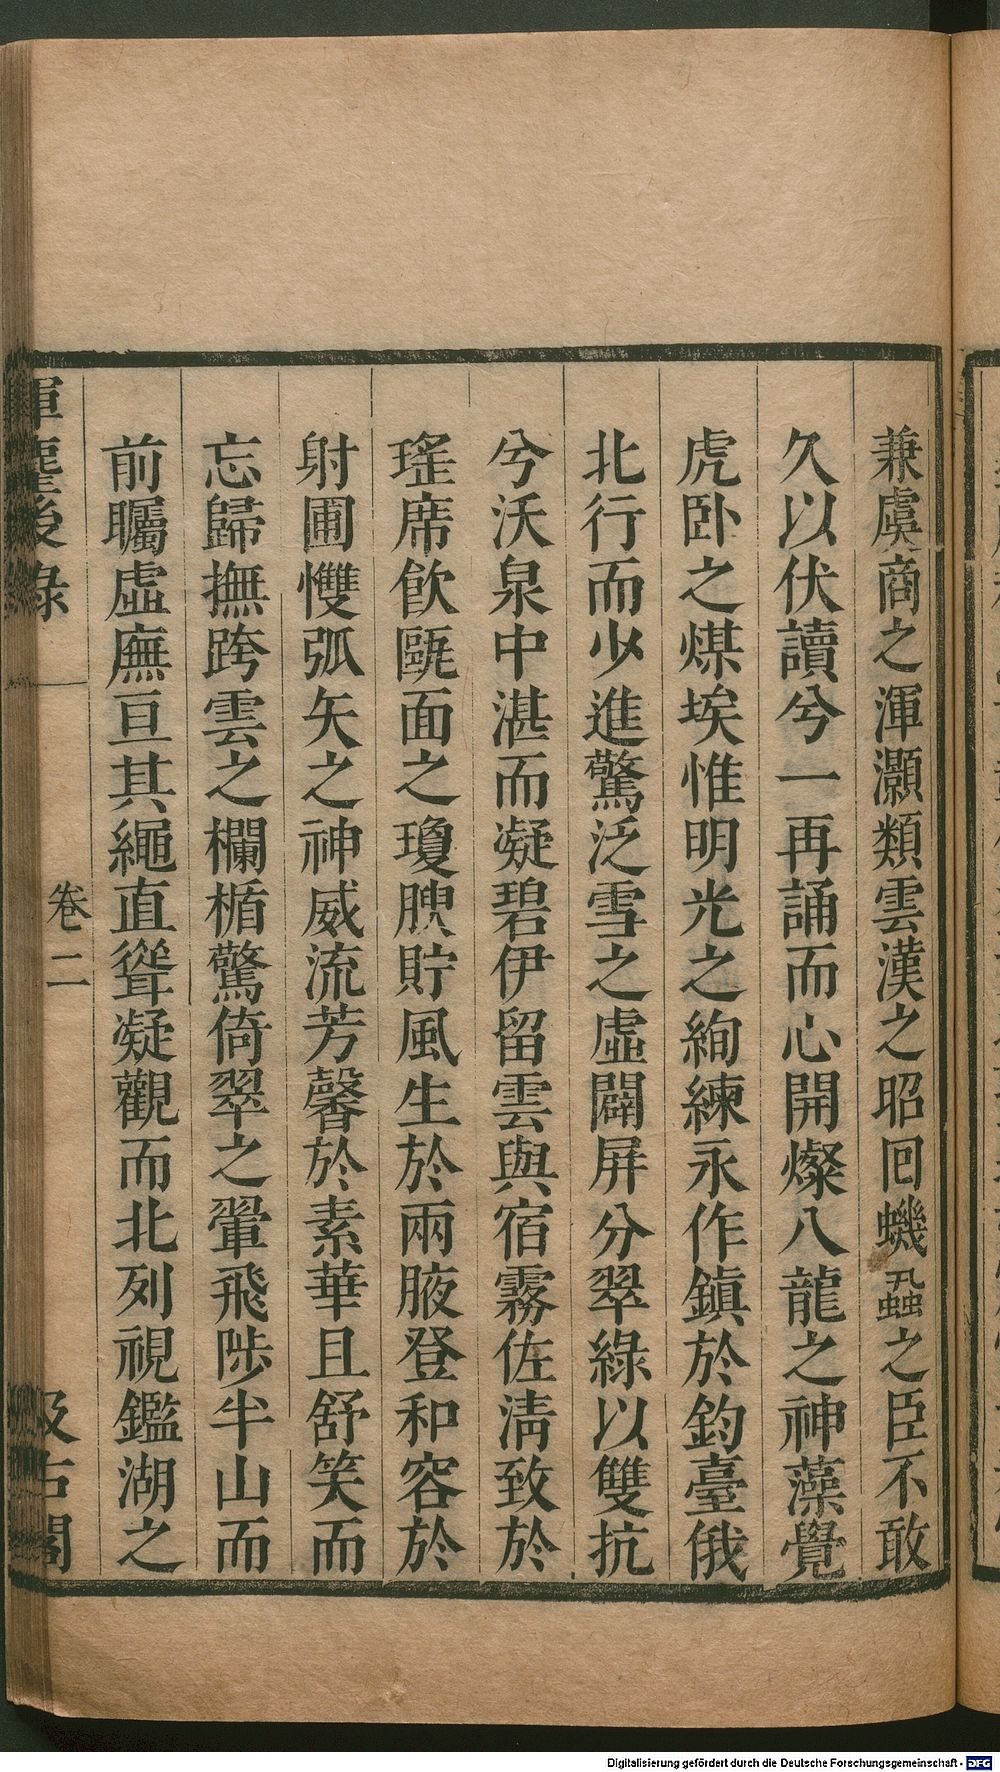 兼虞商之渾灝類雲漢之昭回蟣蝨之臣不敢
久以伏讀兮一再誦而心開燦八龍之神藻覺
虎卧之煤埃惟明光之絢練永作鎮於鈞臺俄
北行而少進驚泛雪之虛闢屏分翠綠以雙抗
兮沃泉中湛而凝碧伊留雲與宿霧佐清致於
瑤席飲甌面之瓊腴貯風生於兩腋登和容於
射圃慴弧矢之神威流芳馨於素華且舒笑而
忘歸撫跨雲之欄楯驚倚翠之翬飛陟半山而
前矚虛廡亘其繩直聳凝觀而北列視鑑湖之
揮麈後錄
卷二
汲古閣
Digitalisierung gefördert durch die Deutsche Forschungsgemeinschaft - DFG